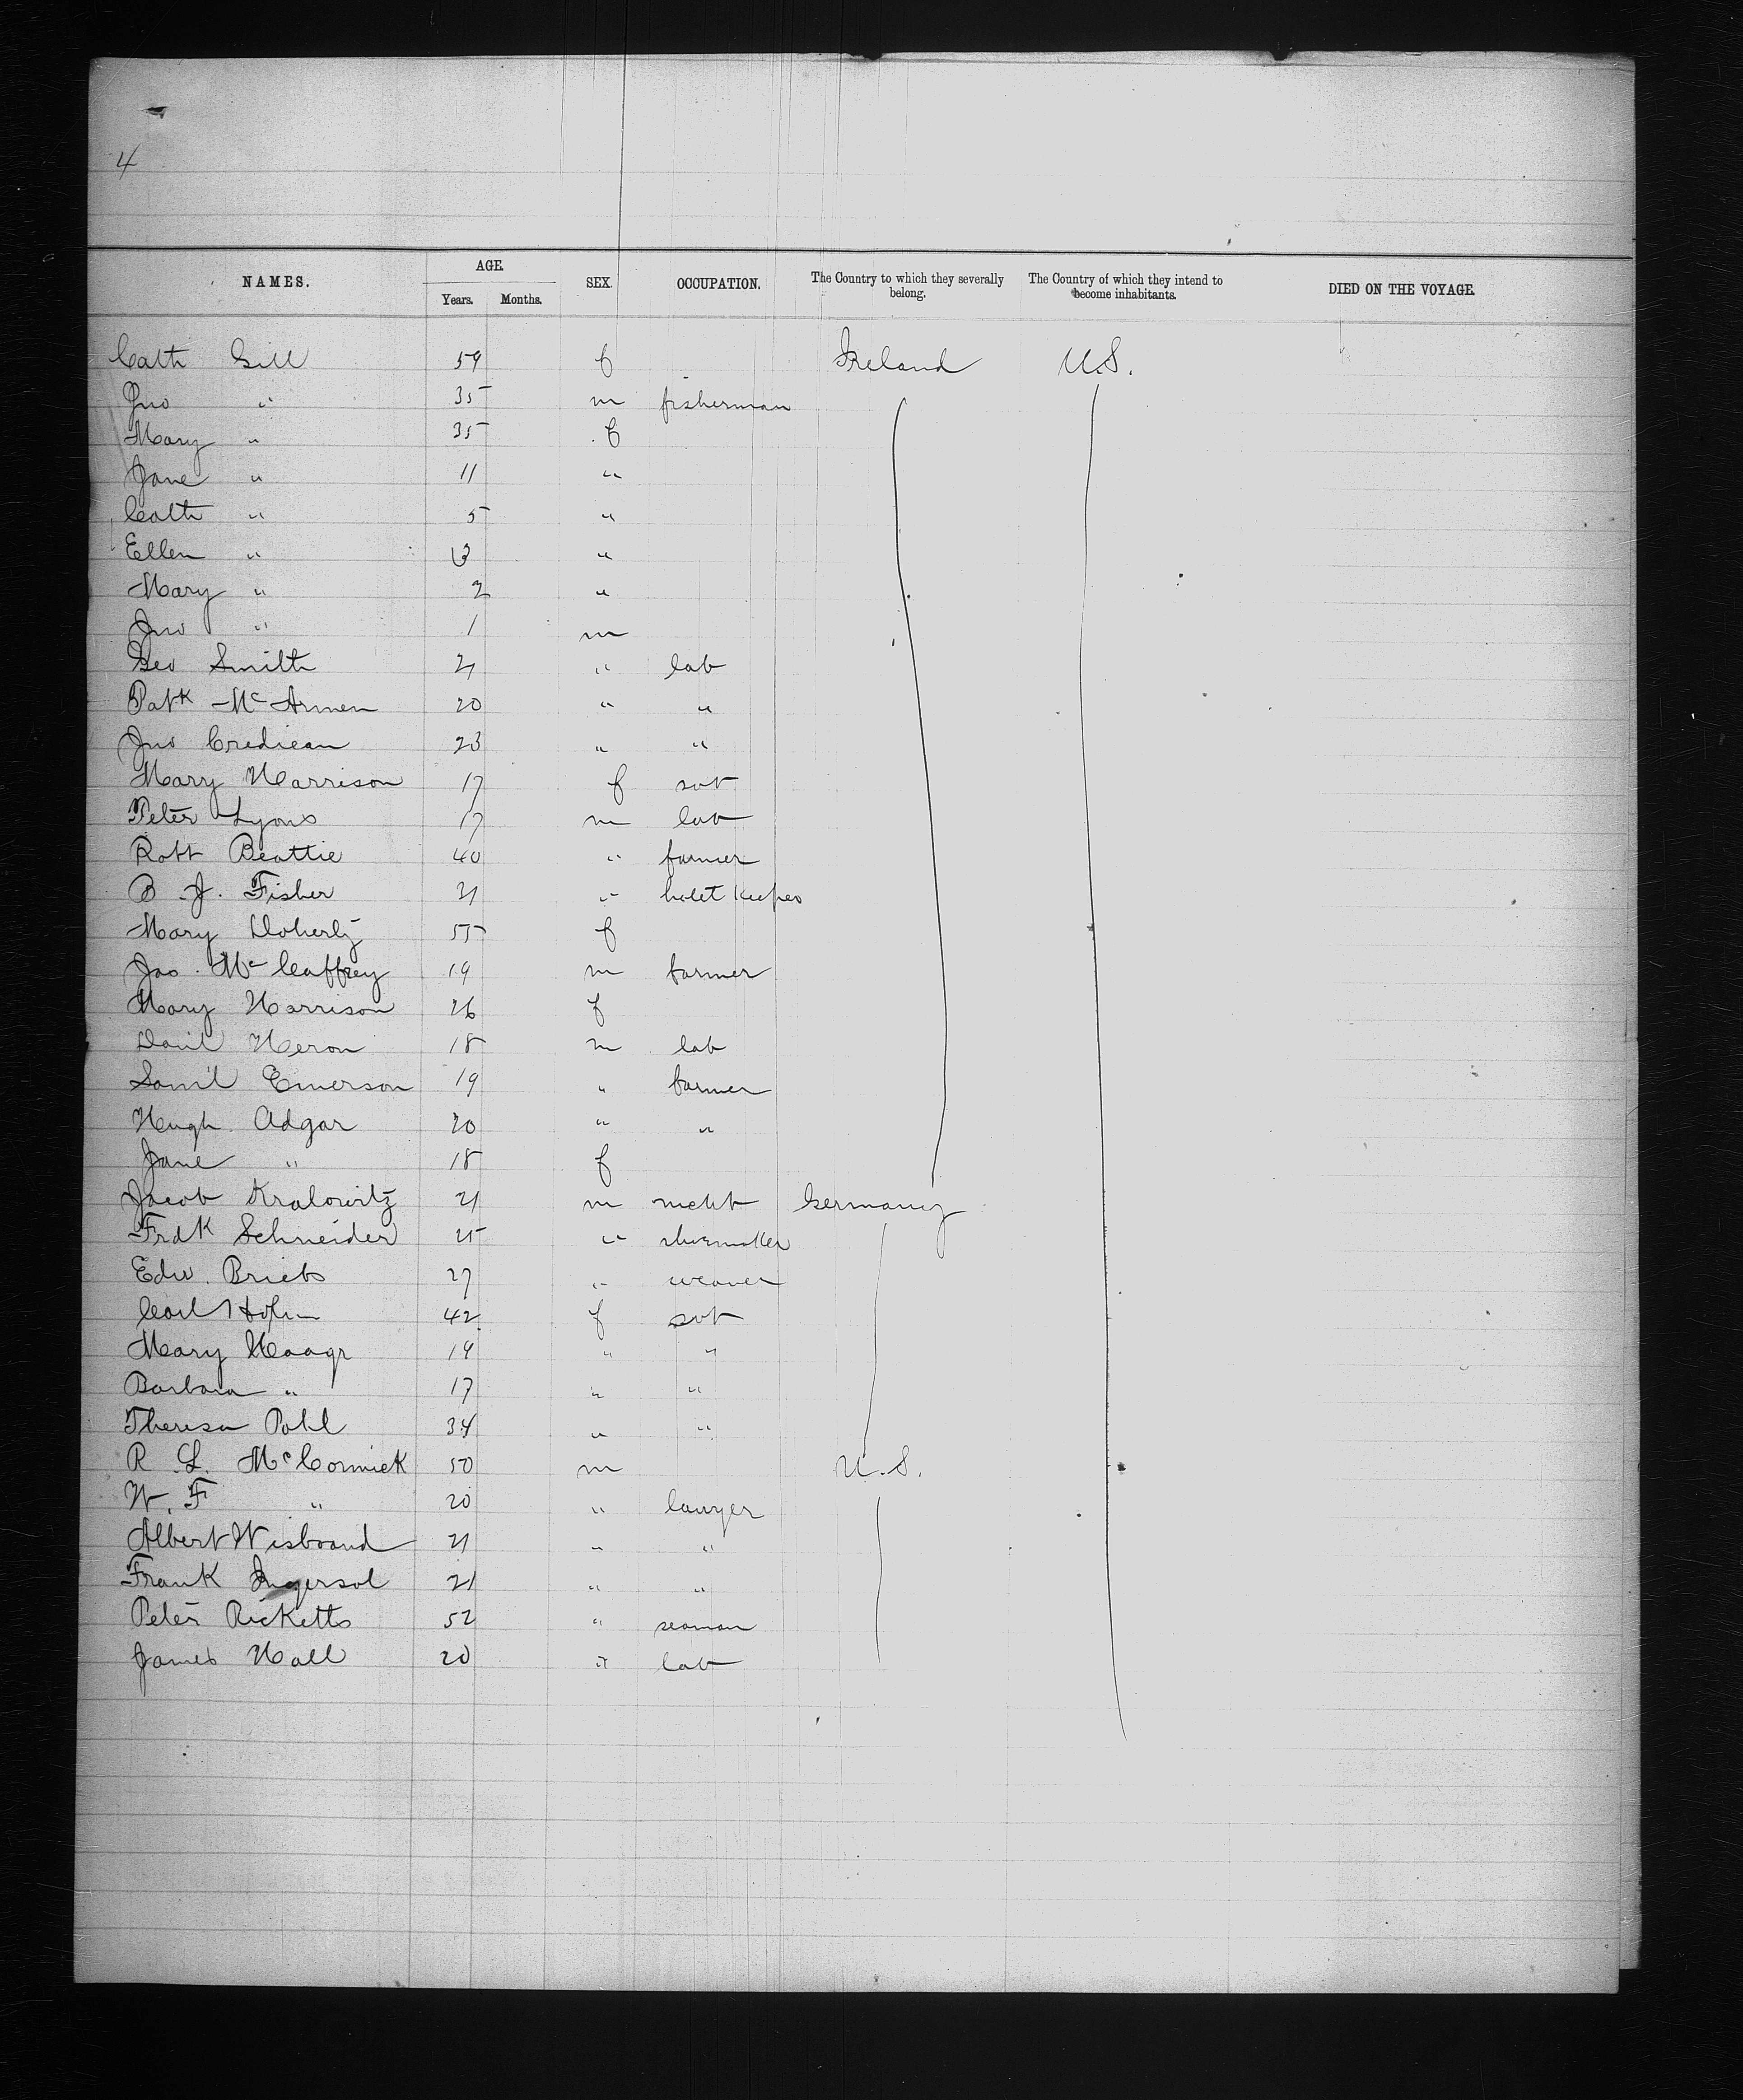 4
NAMES. AGE. Years. Months. SEX. OCCUPATION. The Country to which they severally belong. The Country of which they intend to become inhabitants. DIED ON THE VOYAGE.
Cath Gill 59 f Ireland U.S.
Jno " 35 m fisherman
Mary " 35 f
Jane " 11 "
Cath " 5 "
Ellen " 3 "
Mary " 2 "
Jno " 1 m
Geo Smith 21 " lab
Patk McArmen 20 " "
Jno Credican 23 " "
Mary Harrison 17 f svt
Peter Lyons 17 m lab
Robt Beattie 40 " farmer
B. J. Fisher 21 " hotel keeper
Mary Doherty 55 f
Jas. McCaffrey 19 m farmer
Mary Harrison 26 f
Danl Heron 18 m lab
Saml Emerson 19 " farmer
Hugh Adgar 20 " "
Jane " 18 f
Jacob Kralowitz 21 m mcht Germany
Frdk Schneider 25 " shoemaker
Edw. Briebs 27 " weaver
Carl 42 f svt
Mary Haagr 19 " "
Barbara " 17 " "
Theresa Pohl 34 " "
R. L. McCormick 50 m U.S.
W. F " 20 " lawyer
Albert Wisbrand 21 " "
Frank Ingersol 21 " "
Peter Ricketts 52 " seaman
James Hall 20 " lab